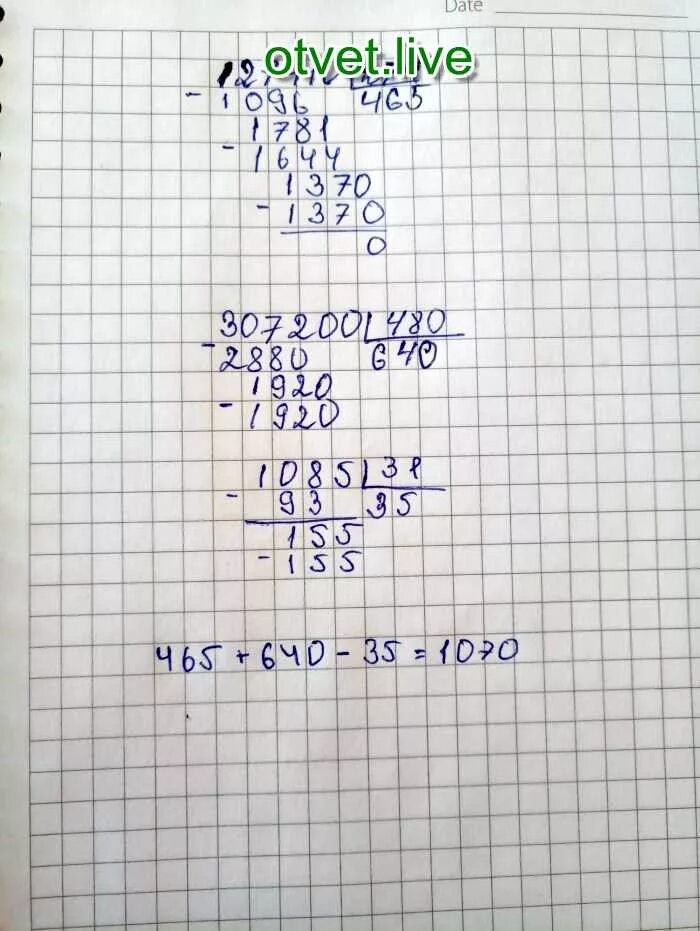 Date
otvet.live
- 1096 465
1781
- 1644
1370
- 1370
0
307200 480
- 2880 640
1920
- 1920
1085 31
- 93 35
155
- 155
465 + 640 - 35 = 1070